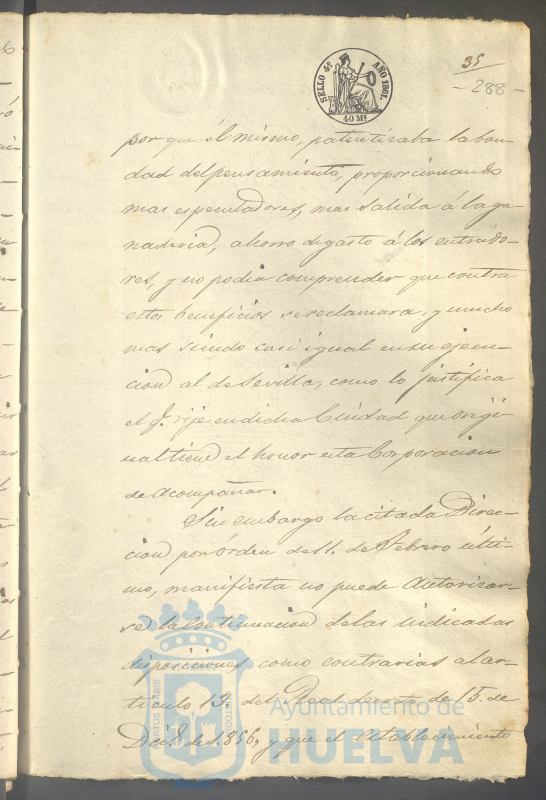 35
- 288 -
SELLO 4º AÑO 1861.
40 Ms
por que él mismo, patentizaba la bon-
dad del pensamiento, proporcionando
mas especuladores, mas salida á la ga-
naderia, ahorro de gasto á los entrado-
res, y no podia comprender que contra
estos beneficios se reclamara, y mucho
mas siendo casi igual en su ejecu-
cion al de Sevilla, como lo justifica
el q. rije en dicha Ciudad que origi-
nal tiene el honor esta Corporacion
de acompañar.
Sin embargo la citada Direc-
cion por órden del 1. de Febrero últi-
mo, manifiesta no puede autorizar-
se la continuacion de las indicadas
disposiciones como contrarias al ar-
ticulo 13. del Real decreto de 15. de
Dice. de 1.856, y que el establecimiento
Ayuntamiento de
HUELVA